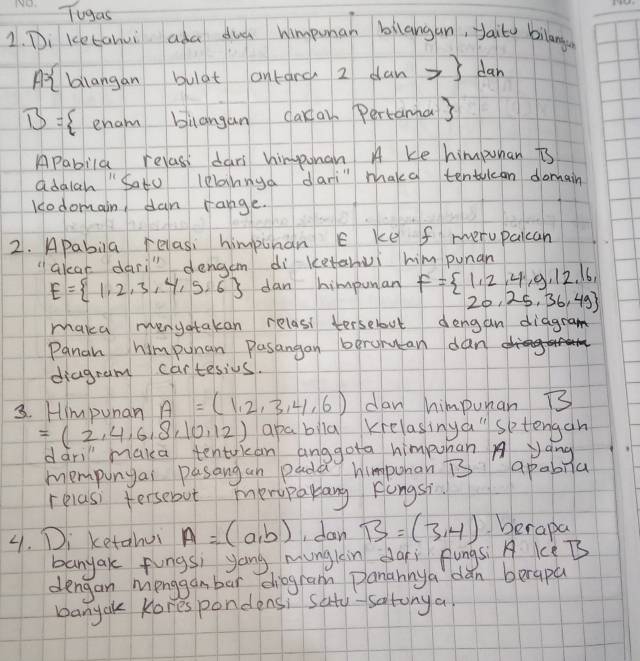 Tugas
1. Di ketahui ada dua himpunan bilangan, yaitu bilangan
A{ bilangan bulat antara 2 dan > } dan
B = { enam bilangan cacah Pertama }
APabila relasi dari himpunan A ke himpunan B
adalah "Satu lebihnya dari" maka tentukan domain
kodomain, dan range.
2. APabila relasi himpunan E ke f merupakan
"akar dari" dengan di ketahui himpunan
E = { 1, 2, 3, 4, 5, 6 } dan himpunan F = { 1, 2, 4, 9, 12, 16,
20, 25, 36, 49}
maka menyatakan relasi tersebut dengan diagram
Panah himpunan Pasangan berurutan dan diagaram
diagram cartesius.
3. Himpunan A = (1,2,3,4,6) dan himpunan B
= (2,4,6,8,10,12) apabila krelasinya "setengah
dari" maka tentukan anggota himpunan A yang
mempunyai pasangan pada himpunan B apabila
relasi tersebut merupakang Fungsi.
4. Di ketahui A = (a,b), dan B = (3,4). berapa
banyak fungsi yang mungkin dari fungsi A ke B
dengan menggambar diogram panahnya dan berapa
banyak Korespondensi satu-satunya.